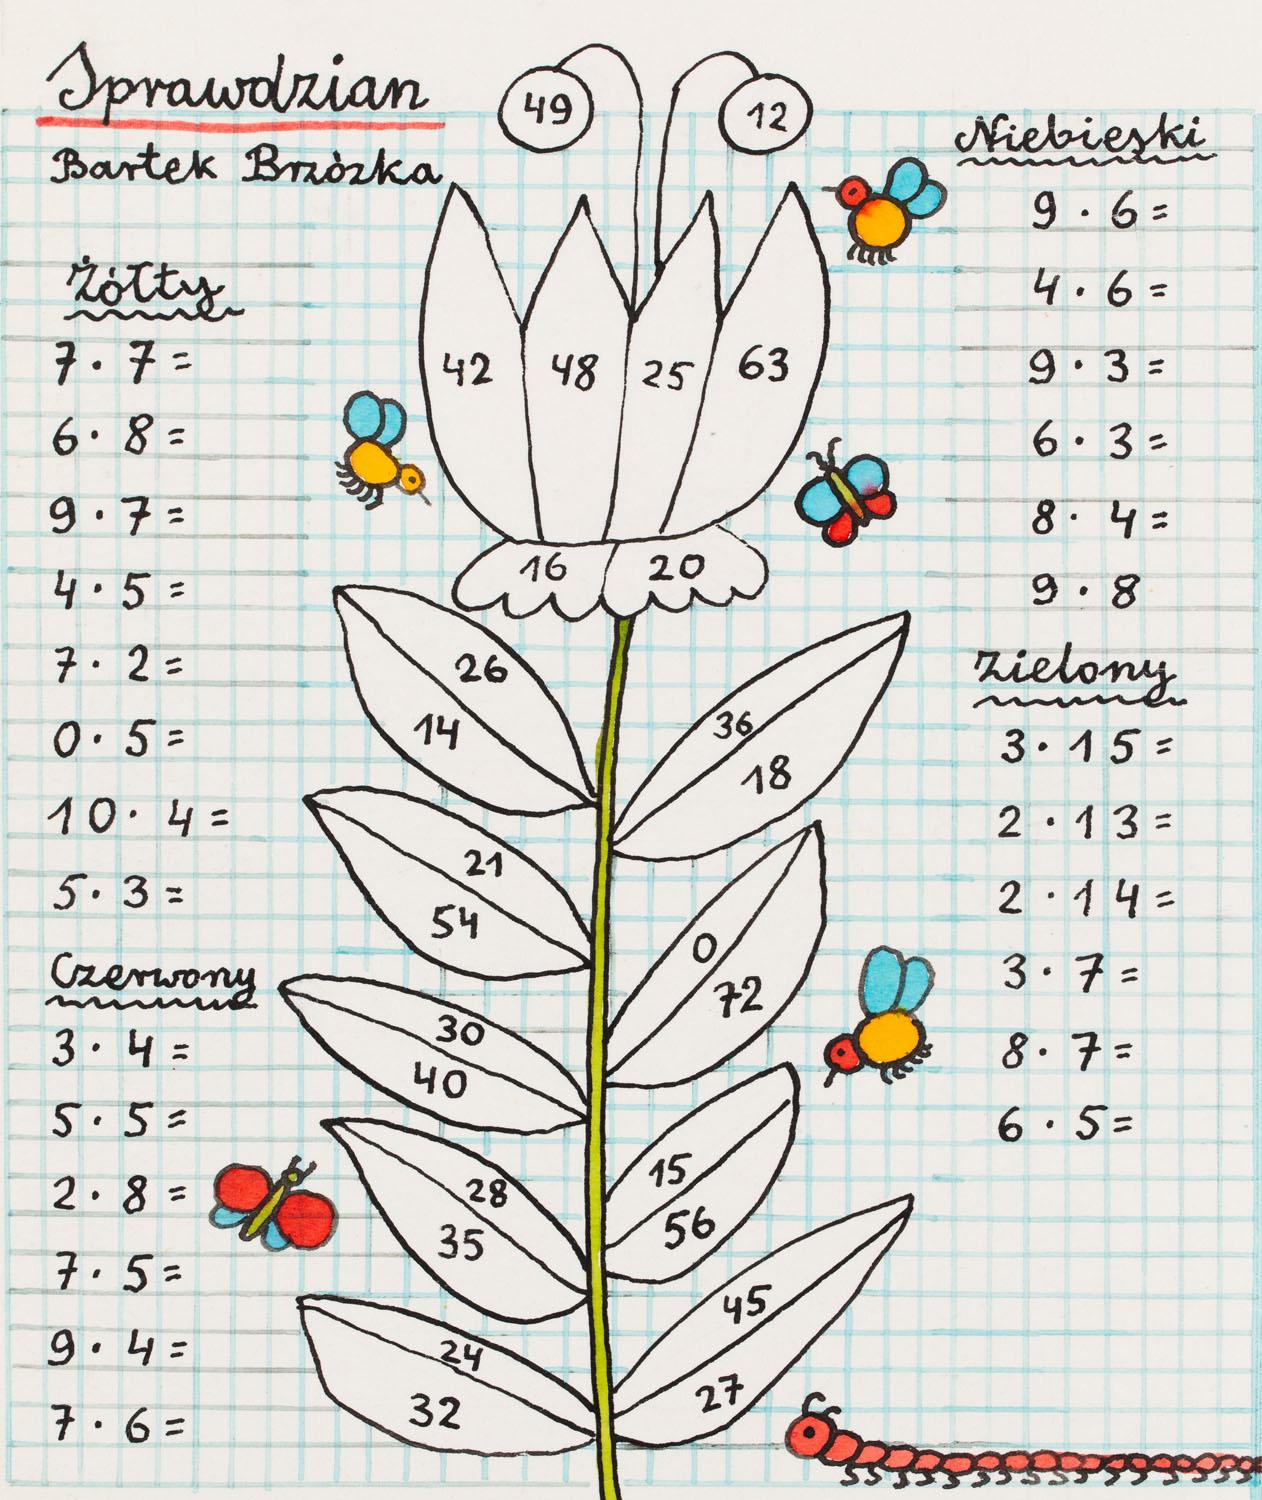 Sprawdzian
Bartek Brzózka
Żółty
7 · 7 =
6 · 8 =
9 · 7 =
4 · 5 =
7 · 2 =
0 · 5 =
10 · 4 =
5 · 3 =
Czerwony
3 · 4 =
5 · 5 =
2 · 8 =
7 · 5 =
9 · 4 =
7 · 6 =
49
12
42
48
25
63
16
20
26
14
36
18
21
54
0
72
30
40
15
56
28
35
45
27
24
32
Niebieski
9 · 6 =
4 · 6 =
9 · 3 =
6 · 3 =
8 · 4 =
9 · 8
Zielony
3 · 15 =
2 · 13 =
2 · 14 =
3 · 7 =
8 · 7 =
6 · 5 =